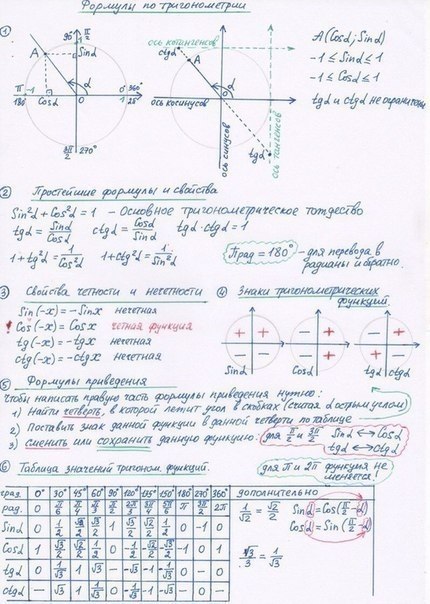 Формулы по тригонометрии
①
90° π/2
1
A
Sinα
α
π
180°
-1
Cosα
0
0 360°
1 2π
-1
3π/2 270°
ось котангенсов
ctgα
A
α
ось косинусов
0
ось синусов
tgα
ось тангенсов
A(Cosα; Sinα)
-1 ≤ Sinα ≤ 1
-1 ≤ Cosα ≤ 1
tgα и ctgα не ограничены
② Простейшие формулы и свойства
Sin²α + Cos²α = 1 – Основное тригонометрическое тождество
tgα = Sinα/Cosα ctgα = Cosα/Sinα tgα · ctgα = 1
1 + tg²α = 1/Cos²α 1 + ctg²α = 1/Sin²α
π рад = 180° – для перевода в
радианы и обратно.
③ Свойства четности и нечетности
Sin(-x) = -Sinx нечетная
! Cos(-x) = Cosx четная функция
tg(-x) = -tgx нечетная
ctg(-x) = -ctgx нечетная
④ Знаки тригонометрических
функций.
+ + − + − +
− − − + + −
Sinα Cosα tgα ctgα
⑤ Формулы приведения
Чтобы написать правую часть формулы приведения нужно:
1) Найти четверть, в которой лежит угол в скобках (считая α острым углом)
2) Поставить знак данной функции в данной четверти по таблице
3) сменить или сохранить данную функцию:
для π/2 и 3π/2 Sinα ↔ Cosα
tgα ↔ ctgα
для π и 2π функция не
меняется!
⑥ Таблица значений тригоном. функций.
град. 0° 30° 45° 60° 90° 120° 135° 150° 180° 270° 360°
рад. 0 π/6 π/4 π/3 π/2 2π/3 3π/4 5π/6 π 3π/2 2π
Sinα 0 1/2 √2/2 √3/2 1 √3/2 √2/2 1/2 0 -1 0
Cosα 1 √3/2 √2/2 1/2 0 -1/2 -√2/2 -√3/2 -1 0 1
tgα 0 1/√3 1 √3 – -√3 -1 -1/√3 0 – 0
ctgα – √3 1 1/√3 0 -1/√3 -1 -√3 – 0 –
дополнительно
1/√2 = √2/2
√3/3 = 1/√3
Sinα = Cos(π/2 - α)
Cosα = Sin(π/2 - α)